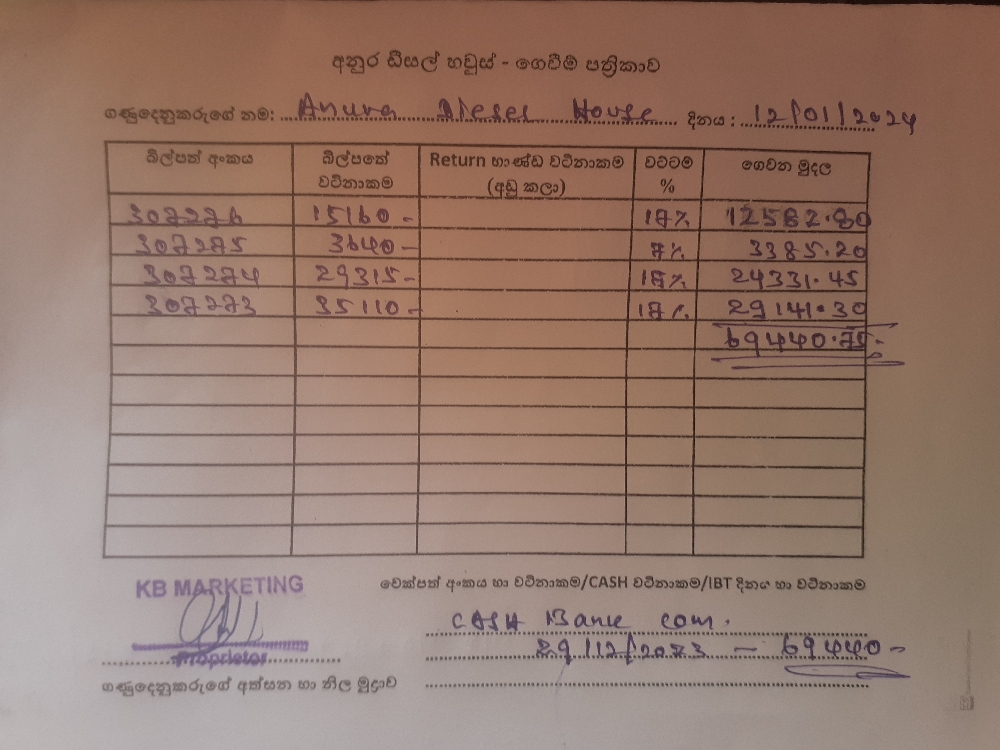 අනුර ඩීසල් හවුස් - ගෙවීම් පත්‍රිකාව
ගණුදෙනුකරුගේ නම: Anura Diesel House දිනය : 12/01/2024
බිල්පත් අංකය බිල්පතේ වටිනාකම Return භාණ්ඩ වටිනාකම (අඩු කලා) වට්ටම % ගෙවන මුදල
307276 15160 - 17% 12582.80
307275 3640 - 7% 3385.20
307274 29315 - 17% 24331.45
307273 35110 - 17% 29141.30
69440.75
KB MARKETING
චෙක්පත් අංකය හා වටිනාකම/CASH වටිනාකම/IBT දිනය හා වටිනාකම
CASH Bank com.
29/12/2023 - 69440 -
Proprietor
ගණුදෙනුකරුගේ අත්සන හා නිල මුද්‍රාව